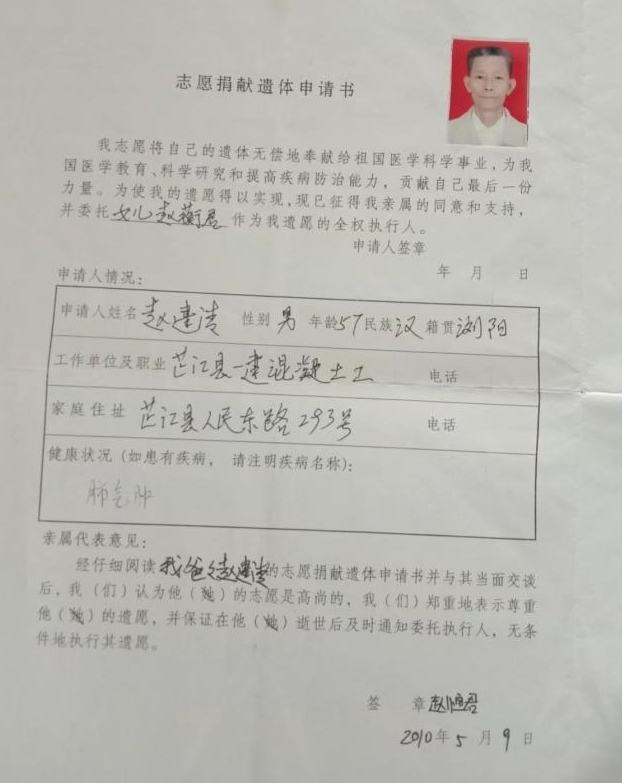 志愿捐献遗体申请书
我志愿将自己的遗体无偿地奉献给祖国医学科学事业，为我
国医学教育、科学研究和提高疾病防治能力，贡献自己最后一份
力量。为使我的遗愿得以实现，现已征得我亲属的同意和支持，
并委托女儿赵蘅君作为我遗愿的全权执行人。
申请人签章
年 月 日
申请人情况：
申请人姓名 赵建清 性别 男 年龄57民族汉 籍贯浏阳
工作单位及职业 芷江县一建混凝土工 电话
家庭住址 芷江县人民东路293号 电话
健康状况（如患有疾病， 请注明疾病名称）：
肺气肿
亲属代表意见：
经仔细阅读我爸爸赵建清的志愿捐献遗体申请书并与其当面交谈
后，我（们）认为他（她）的志愿是高尚的，我（们）郑重地表示尊重
他（她）的遗愿，并保证在他（她）逝世后及时通知委托执行人，无条
件地执行其遗愿。
签 章赵恒君
2010年5月9日